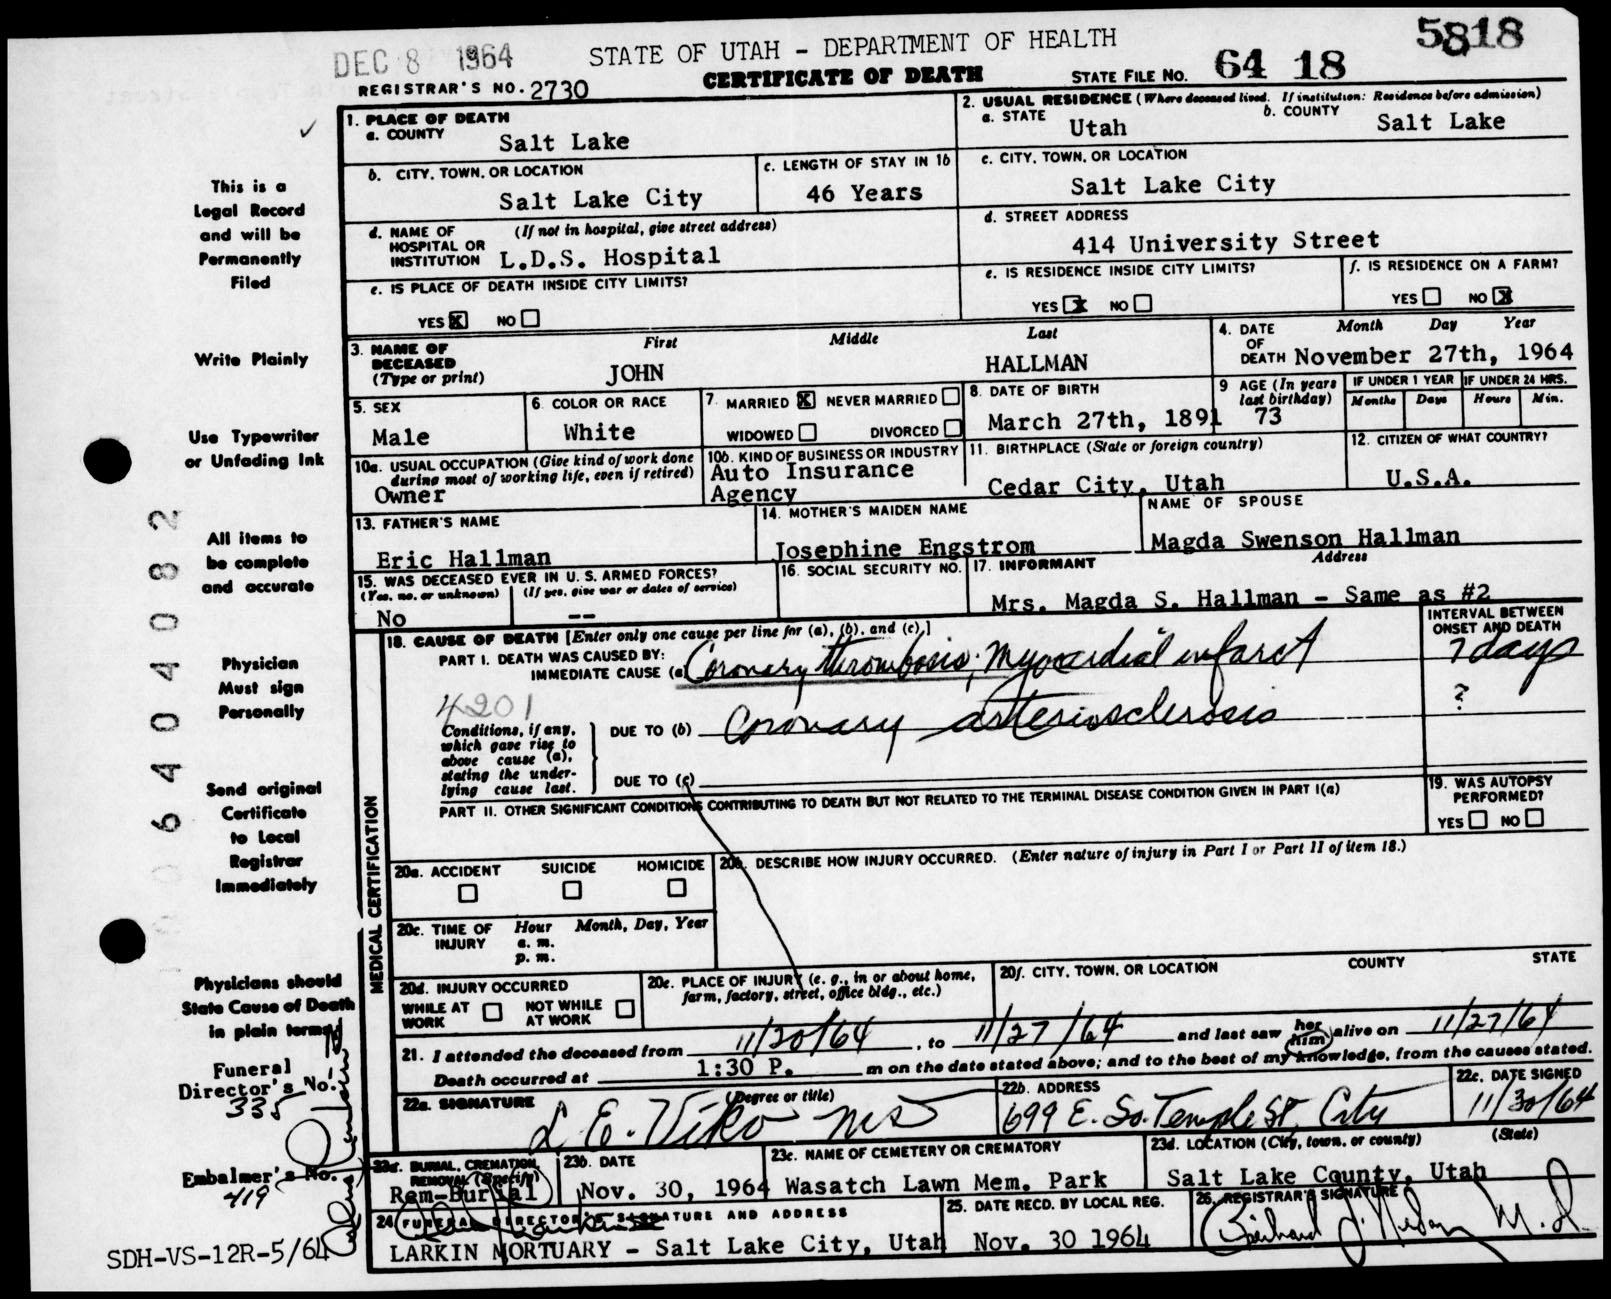 DEC 8 1964
STATE OF UTAH - DEPARTMENT OF HEALTH
5818
CERTIFICATE OF DEATH
STATE FILE NO. 64 18
REGISTRAR'S NO. 2730
1. PLACE OF DEATH
a. COUNTY
Salt Lake
2. USUAL RESIDENCE (Where deceased lived. If institution: Residence before admission)
a. STATE
Utah
b. COUNTY
Salt Lake
b. CITY, TOWN, OR LOCATION
Salt Lake City
c. LENGTH OF STAY IN 1b
46 Years
c. CITY, TOWN, OR LOCATION
Salt Lake City
d. NAME OF HOSPITAL OR INSTITUTION
(If not in hospital, give street address)
L.D.S. Hospital
d. STREET ADDRESS
414 University Street
e. IS PLACE OF DEATH INSIDE CITY LIMITS?
YES X NO
e. IS RESIDENCE INSIDE CITY LIMITS?
YES X NO
f. IS RESIDENCE ON A FARM?
YES NO X
3. NAME OF DECEASED
(Type or print)
First Middle Last
JOHN HALLMAN
4. DATE OF DEATH
Month Day Year
November 27th, 1964
5. SEX
Male
6. COLOR OR RACE
White
7. MARRIED X NEVER MARRIED
WIDOWED DIVORCED
8. DATE OF BIRTH
March 27th, 1891
9 AGE (In years last birthday)
73
IF UNDER 1 YEAR
Months Days
IF UNDER 24 HRS.
Hours Min.
10a. USUAL OCCUPATION (Give kind of work done during most of working life, even if retired)
Owner
10b. KIND OF BUSINESS OR INDUSTRY
Auto Insurance
Agency
11. BIRTHPLACE (State or foreign country)
Cedar City, Utah
12. CITIZEN OF WHAT COUNTRY?
U.S.A.
13. FATHER'S NAME
Eric Hallman
14. MOTHER'S MAIDEN NAME
Josephine Engstrom
NAME OF SPOUSE
Magda Swenson Hallman
15. WAS DECEASED EVER IN U. S. ARMED FORCES?
(Yes, no, or unknown) (If yes, give war or dates of service)
No --
16. SOCIAL SECURITY NO.
17. INFORMANT Address
Mrs. Magda S. Hallman - Same as #2
18. CAUSE OF DEATH [Enter only one cause per line for (a), (b), and (c).]
INTERVAL BETWEEN ONSET AND DEATH
PART I. DEATH WAS CAUSED BY:
IMMEDIATE CAUSE (a) Coronary thrombosis; Myocardial infarct
7 days
4201
Conditions, if any, which gave rise to above cause (a), stating the underlying cause last.
DUE TO (b) Coronary arteriosclerosis
?
DUE TO (c)
PART II. OTHER SIGNIFICANT CONDITIONS CONTRIBUTING TO DEATH BUT NOT RELATED TO THE TERMINAL DISEASE CONDITION GIVEN IN PART I(a)
19. WAS AUTOPSY PERFORMED?
YES NO
20a. ACCIDENT SUICIDE HOMICIDE
20b. DESCRIBE HOW INJURY OCCURRED. (Enter nature of injury in Part I or Part II of item 18.)
20c. TIME OF INJURY
Hour Month, Day, Year
a. m.
p. m.
20d. INJURY OCCURRED
WHILE AT WORK NOT WHILE AT WORK
20e. PLACE OF INJURY (e. g., in or about home, farm, factory, street, office bldg., etc.)
20f. CITY, TOWN, OR LOCATION COUNTY STATE
21. I attended the deceased from 11/20/64, to 11/27/64 and last saw her him alive on 11/27/64
Death occurred at 1:30 P. m on the date stated above; and to the best of my knowledge, from the causes stated.
22a. SIGNATURE (Degree or title)
L E. Viko MD
22b. ADDRESS
699 E. So. Temple St, City
22c. DATE SIGNED
11/30/64
23a. BURIAL, CREMATION, REMOVAL (Specify)
Rem-Burial
23b. DATE
Nov. 30, 1964
23c. NAME OF CEMETERY OR CREMATORY
Wasatch Lawn Mem. Park
23d. LOCATION (City, town, or county) (State)
Salt Lake County, Utah
24 FUNERAL DIRECTOR'S SIGNATURE AND ADDRESS
LARKIN MORTUARY - Salt Lake City, Utah
25. DATE RECD. BY LOCAL REG.
Nov. 30 1964
26. REGISTRAR'S SIGNATURE
M.D.
MEDICAL CERTIFICATION
This is a
Legal Record
and will be
Permanently
Filed
Write Plainly
Use Typewriter
or Unfading Ink
All items to
be complete
and accurate
Physician
Must sign
Personally
Send original
Certificate
to Local
Registrar
Immediately
Physicians should
State Cause of Death
in plain terms
Funeral
Director's No.
335
Embalmer's No.
419
SDH-VS-12R-5/64